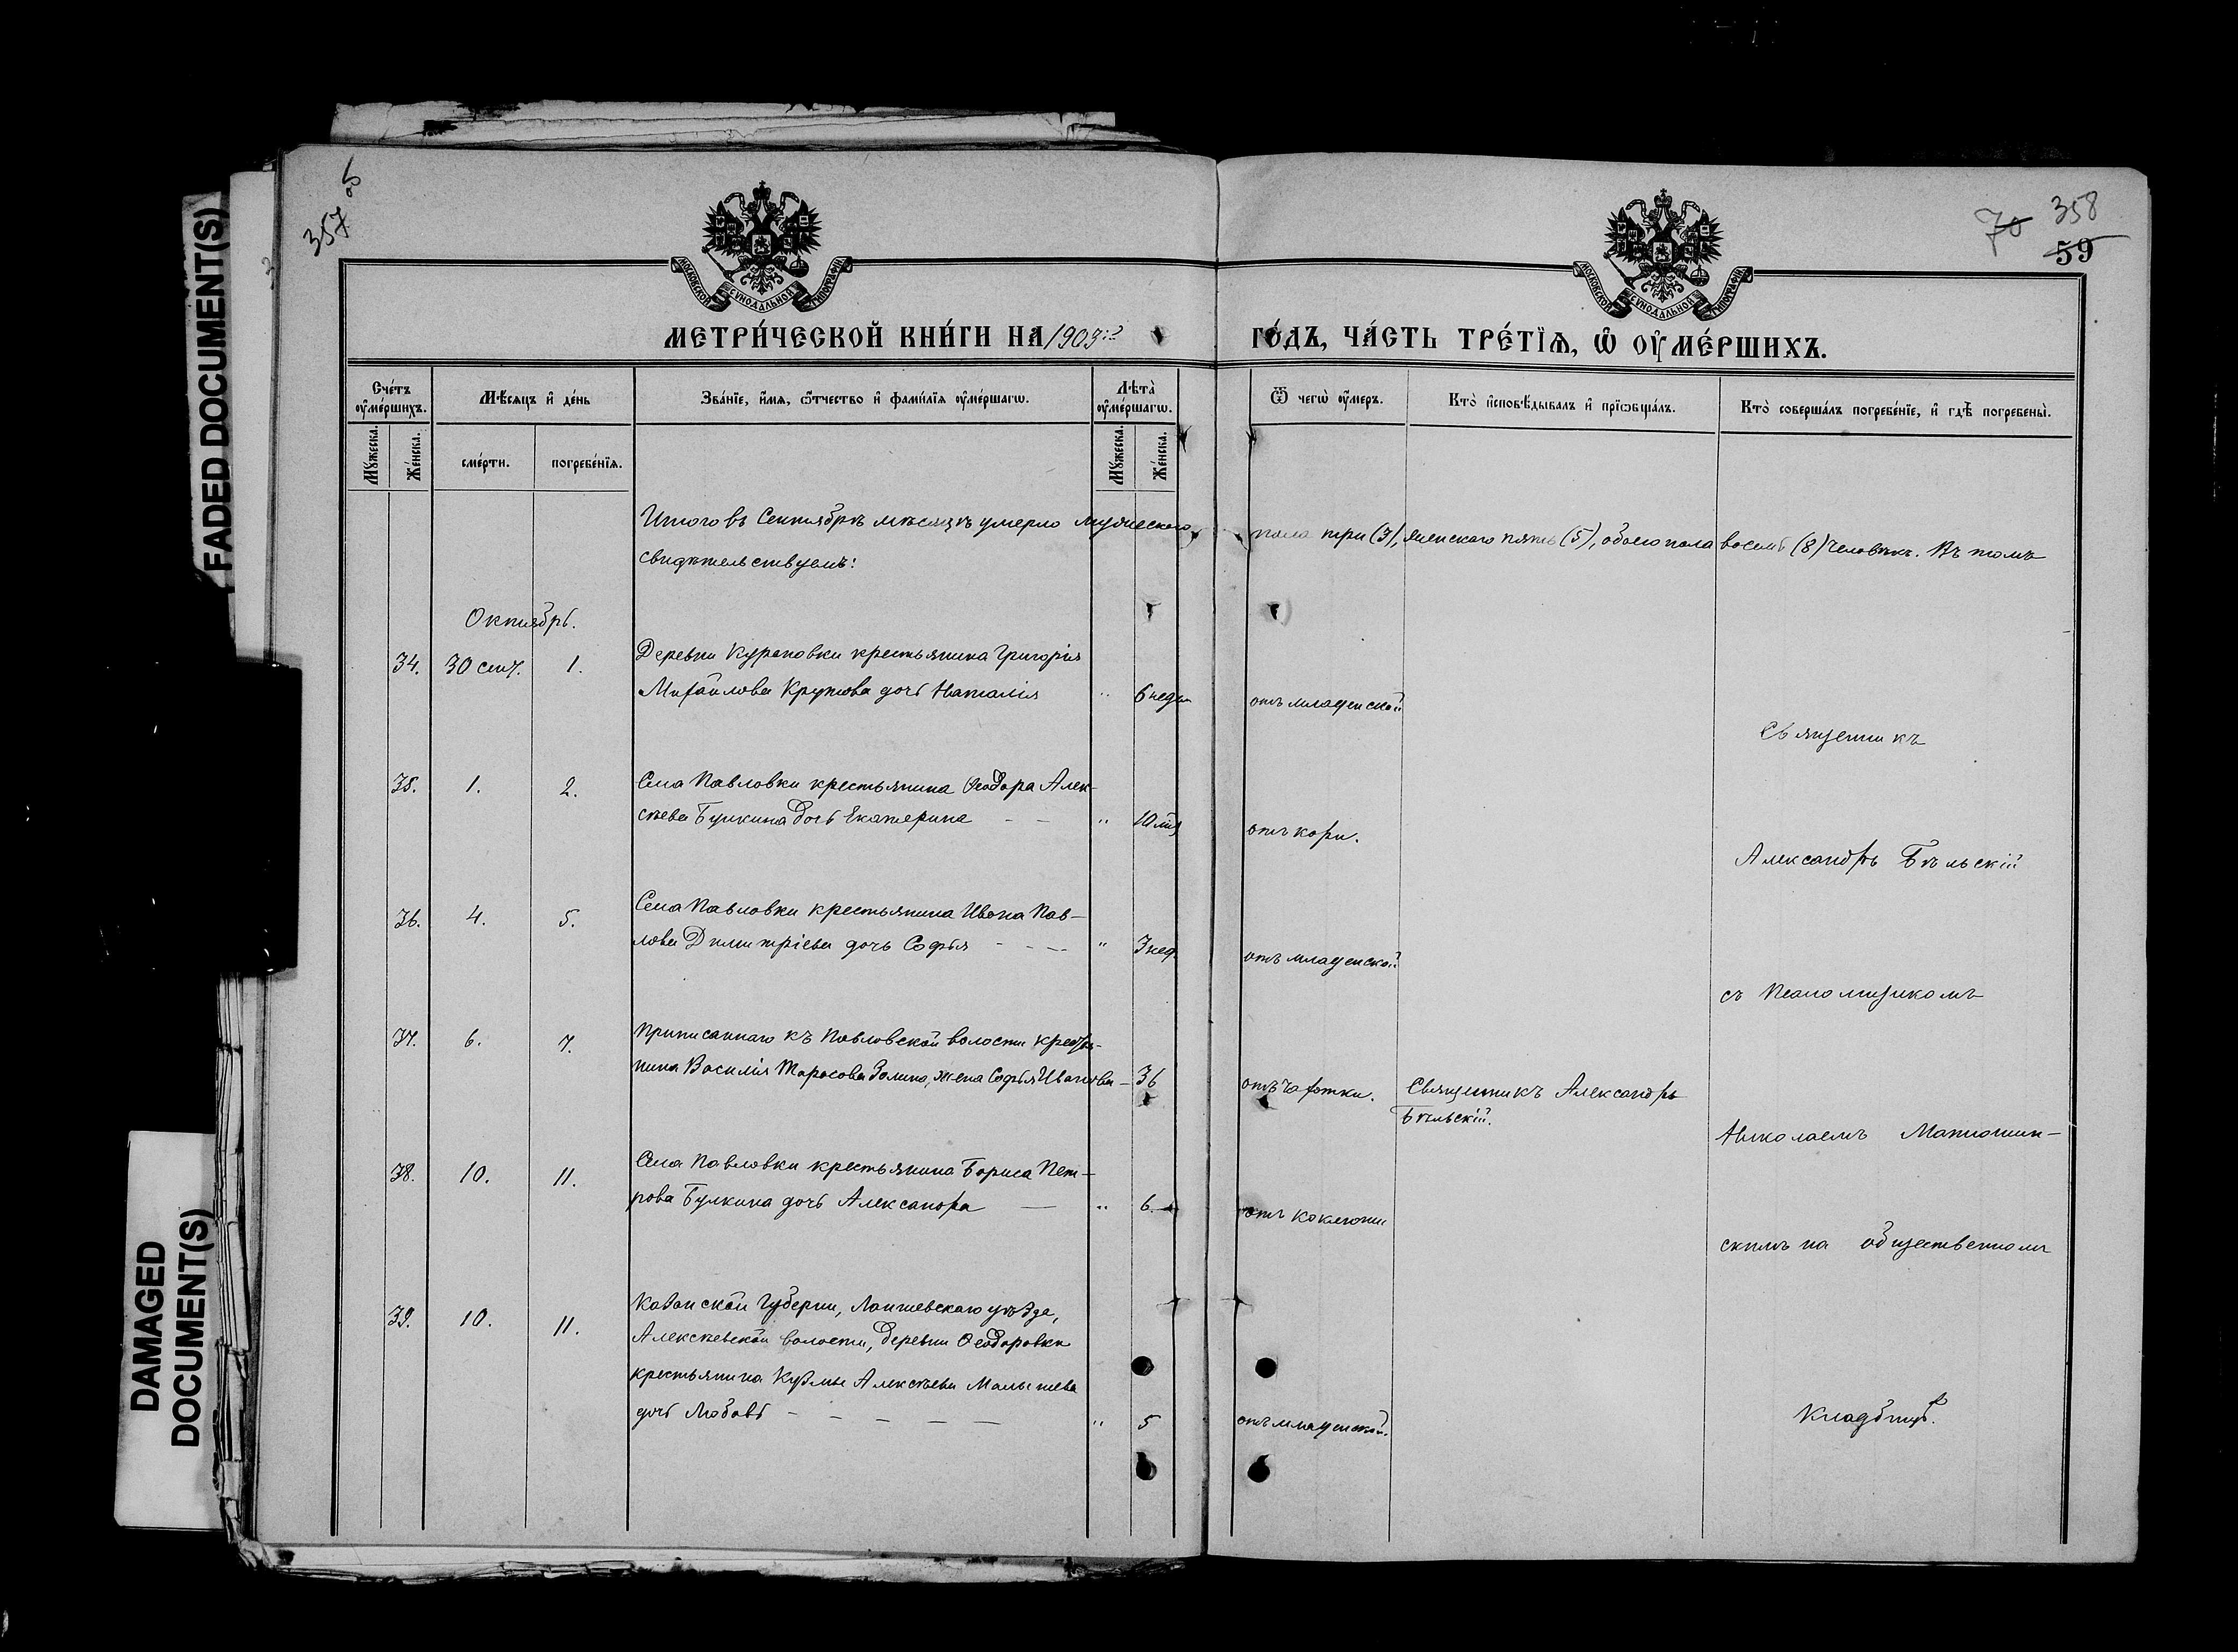 FADED DOCUMENT(S)
DAMAGED
DOCUMENT(S)
357 об
70 358
59
МОСКОВСКОЙ СѴНОДАЛЬНОЙ ТИПОГРАФІИ
МОСКОВСКОЙ СѴНОДАЛЬНОЙ ТИПОГРАФІИ
МЕТРИ́ЧЕСКОЙ КНИ́ГИ НА 1903й
ГО́ДЪ, ЧА́СТЬ ТРЕ́ТЇѦ, Ѡ҆ ОУ҆МЕ́РШИХЪ.
Сче́тъ оу҆ме́ршихъ.
Мꙋ́жеска.
Же́нска.
Мѣ́сяцъ и҆ де́нь
сме́рти.
погребе́нїѧ.
Зва́нїе, и҆́мѧ, ѻ҆́тчество и҆ фами́лїѧ оу҆ме́ршагѡ.
Лѣта̀ оу҆ме́ршагѡ.
Мꙋ́жеска.
Же́нска.
Ѿ чегѡ̀ оу҆́меръ.
Кто̀ и҆сповѣ́дывалъ и҆ прїѡбща́лъ.
Кто̀ соверша́лъ погребе́нїе, и҆ гдѣ̀ погребены̀.
Итого въ Сентябрѣ мѣсяцѣ умерло мужескаго пола три (3), женскаго пять (5), обоего пола восемь (8) человѣкъ. Въ томъ
свидѣтельствуемъ:
Октябрь.
34. 30 сент. 1. Деревни Кураповки крестьянина Григорія
Михайлова Крутова дочь Наталія " 6 нед. отъ младенской
Священникъ
35. 1. 2. Села Павловки крестьянина Ѳеодора Алек-
сѣева Булкина дочь Екатерина — — " 10 мѣ отъ кори.
Александръ Бѣльскій
36. 4. 5. Села Павловки крестьянина Ивана Пав-
лова Димитріева дочь Софья - - - — " 3 нед. отъ младенской
съ Псаломщикомъ
37. 6. 7. Приписаннаго къ Павловской волости крестья-
нина Василія Тарасова Золино, жена Софья Иванова — 36 отъ чахотки. Священникъ Александръ
Бѣльскій.
Николаемъ Матюшин-
38. 10. 11. Села Павловки крестьянина Бориса Пет-
рова Булкина дочь Александра — " 6. отъ коклюши
скимъ на общественномъ
39. 10. 11. Казанской Губерніи, Лаишевскаго уѣзда,
Алексѣевской волости, деревни Ѳеодоровки
крестьянина Кузьмы Алексѣева Малышева
дочь Любовь — — — — — " 5 отъ младенской.
кладбищѣ.